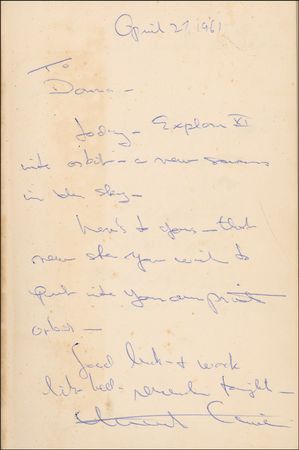 April 27, 1961
To
Donna –
Today – Explorer XI
into orbit – a new
in the sky –
here's to yours – that
new star you wish to
put into your own
orbit –
Good luck – & work
like hell – tonight –